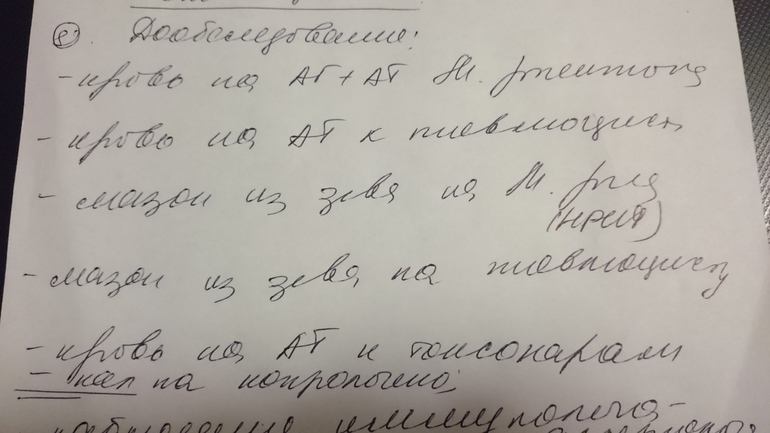 Дообследование:
- кровь на АГ + АТ M. pneumonia
- кровь на АТ к пневмоцисте
- мазок из зева на M. pneu
(НРИТ)
- мазок из зева на пневмоцисту
- кровь на АТ к токсокарам
- кал на копрологию;
наблюдение иммунолога-